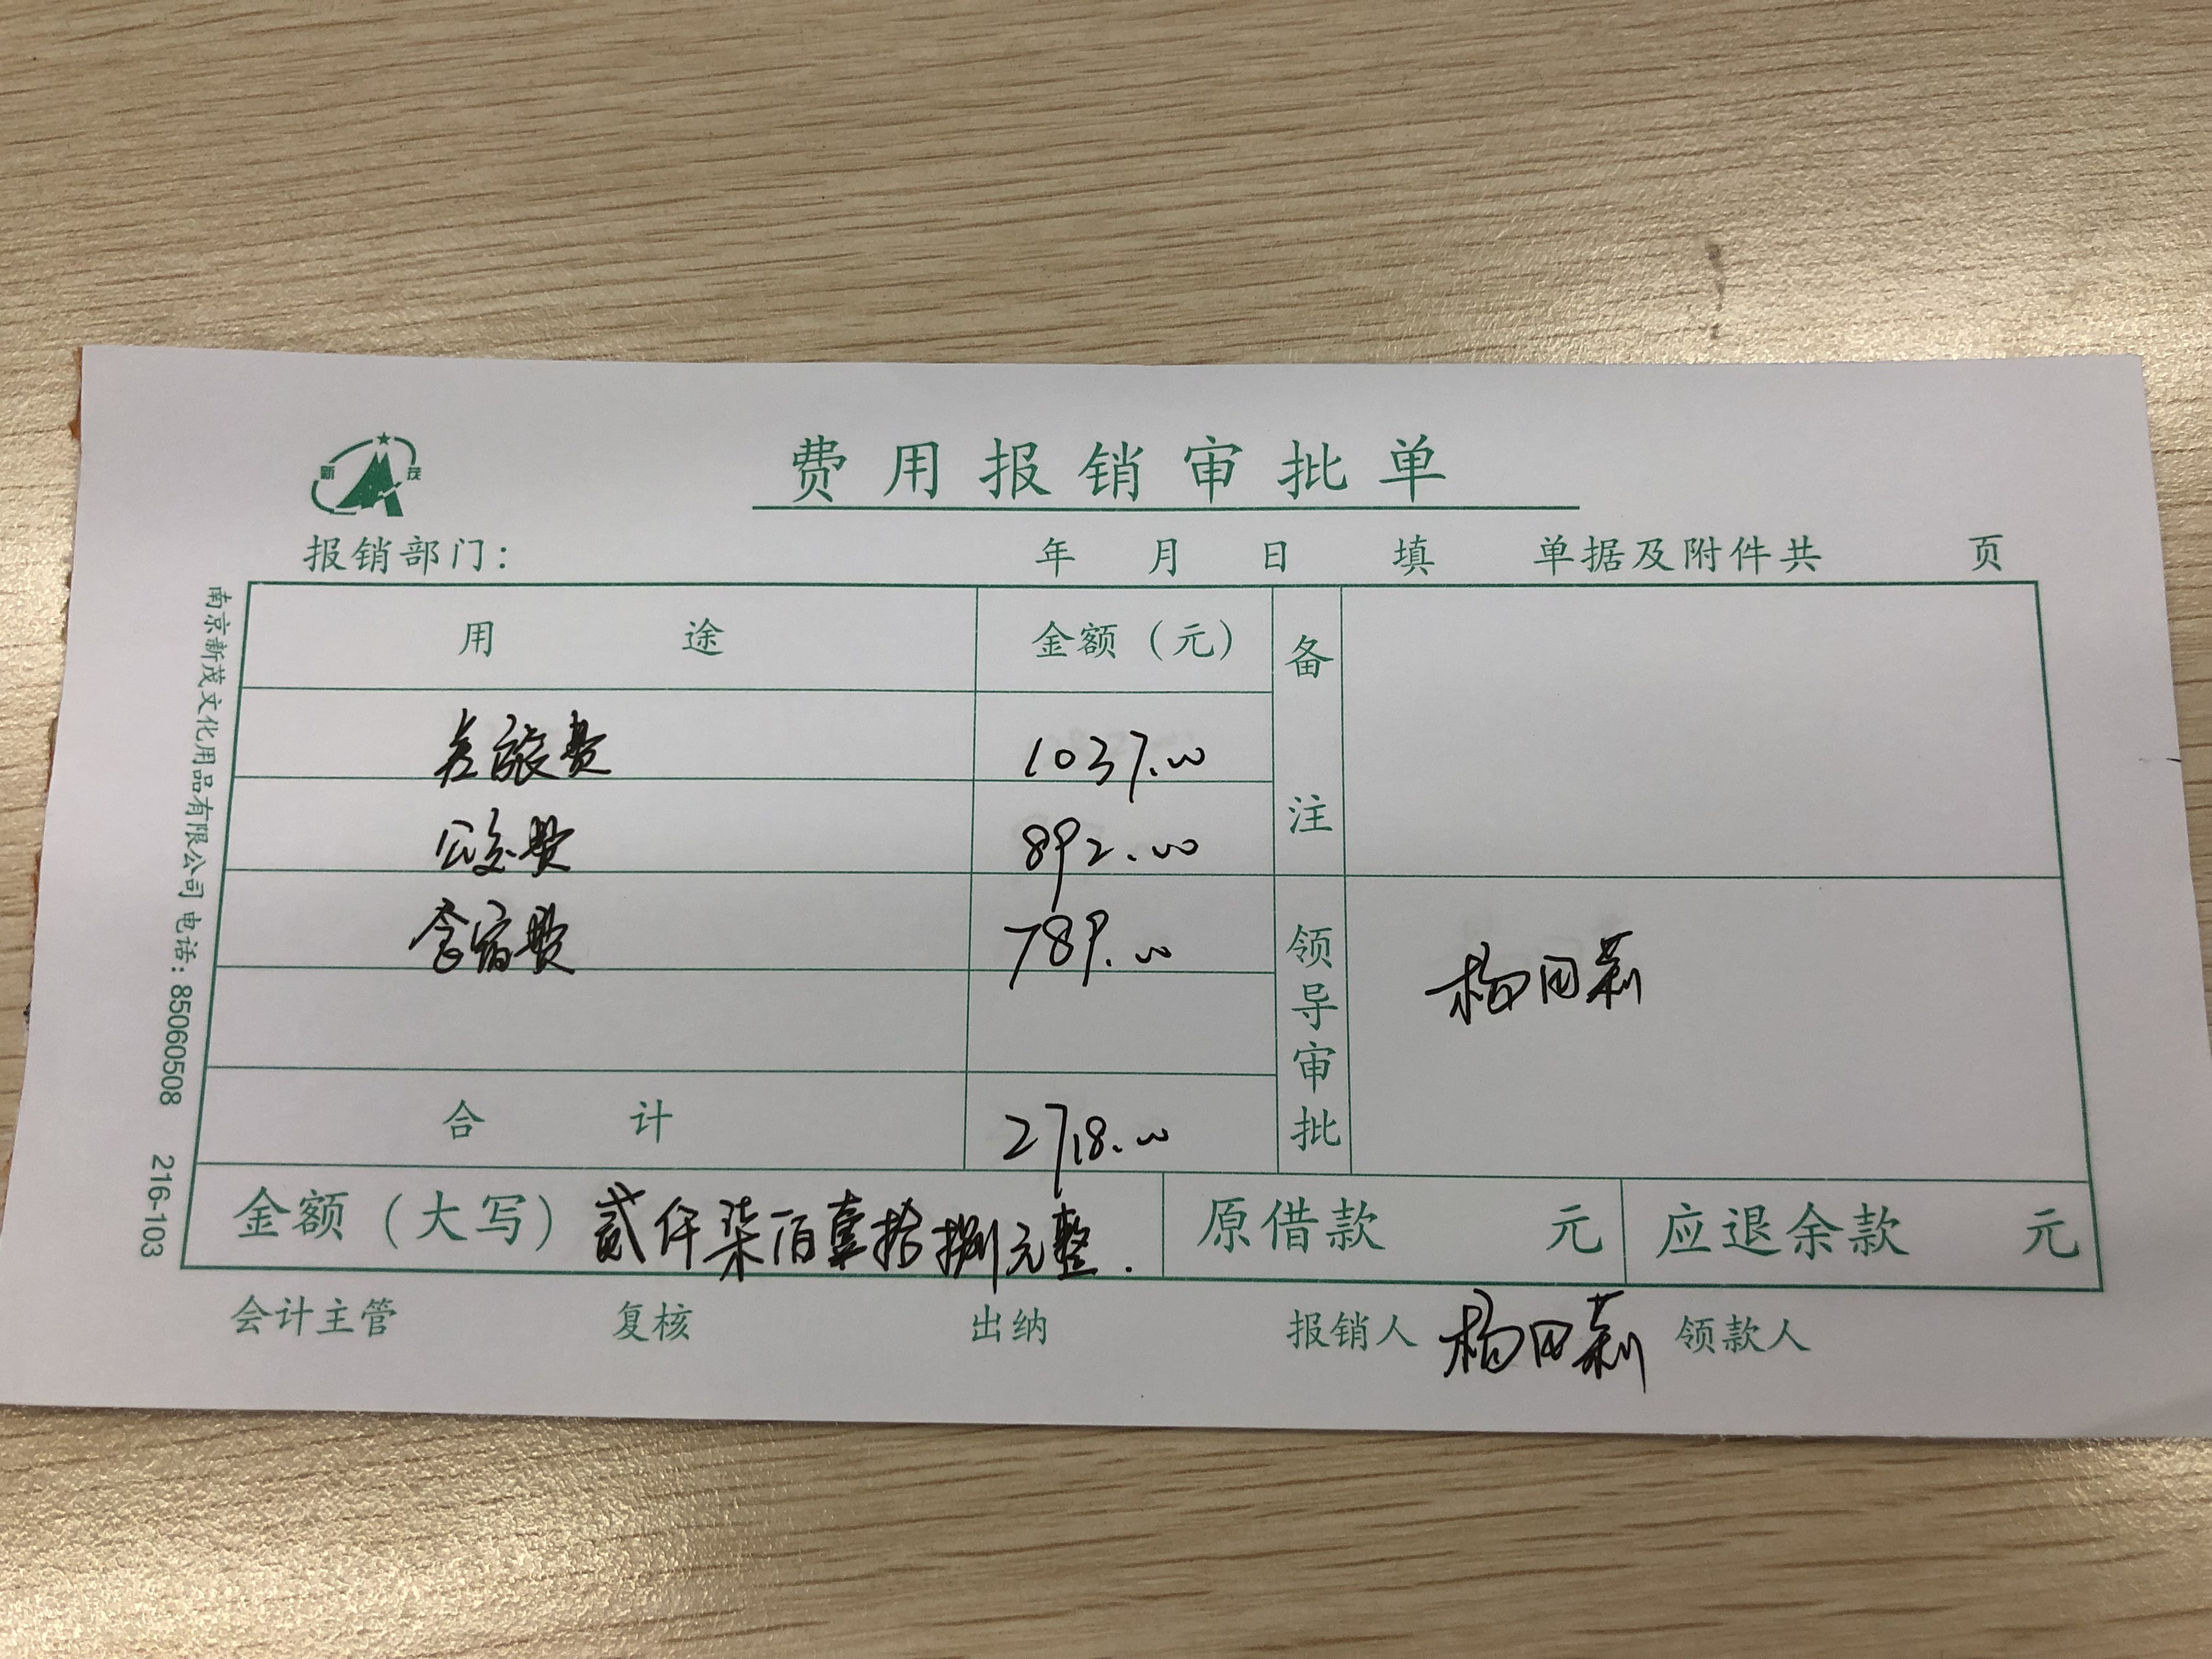 新茂
费用报销审批单
报销部门： 年 月 日填 单据及附件共 页
用途 金额（元） 备注
差旅费 1037.00
公交费 892.00
789.00 领导审批
合计 2718.00
金额（大写）贰仟柒佰壹拾捌元整. 原借款 元 应退余款 元
会计主管 复核 出纳 报销人 领款人
南京新茂文化用品有限公司 电话：85060508 216-103